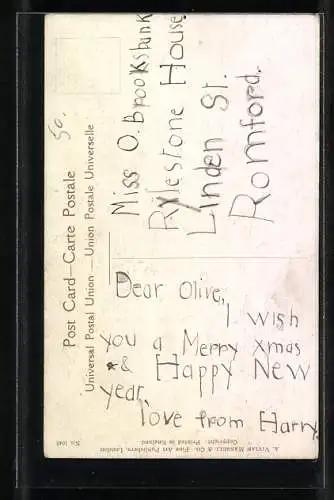 Post Card—Carte Postale
Universal Postal Union — Union Postale Universelle
50.
Miss O. Brooksbank
Rylestone House
Linden St.
Romford.
Dear Olive,
I wish
you a Merry xmas
& Happy New
year,
love from Harry.
A. Vivian Mansell & Co. Fine Art Publishers, London
Copyright. Printed in England
No. 1048